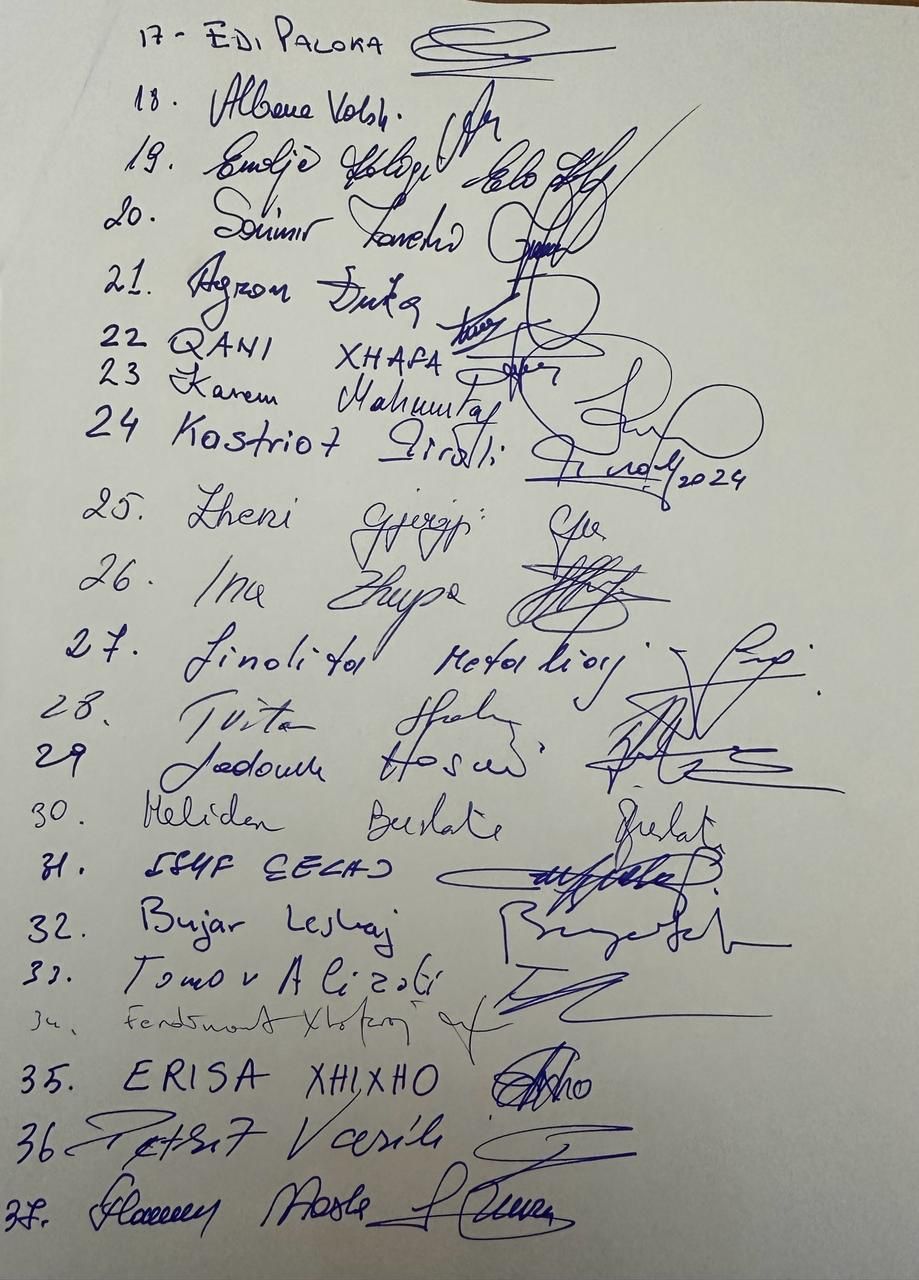 17 - EDI PALOKA
18. Albana Voksh.
19. Emilje
20. Saimir
21. Agron Duka
22 QANI XHAFA
23 Xarem Mahmutaj
24 Kostriot Piroli 2024
25. Zheni Gjergji
26. Ina Zhupa
27. Jinolita Metaliaj
28. Tritan Shehu
29 Hasani
30. Helidon Bushati Bushati
31. ISUF ÇELAJ
32. Bujar Leskaj
33. Tomor Alizoti
34. Ferdinant Xhaferaj
35. ERISA XHIXHO
36 Petrit Vasili
37.